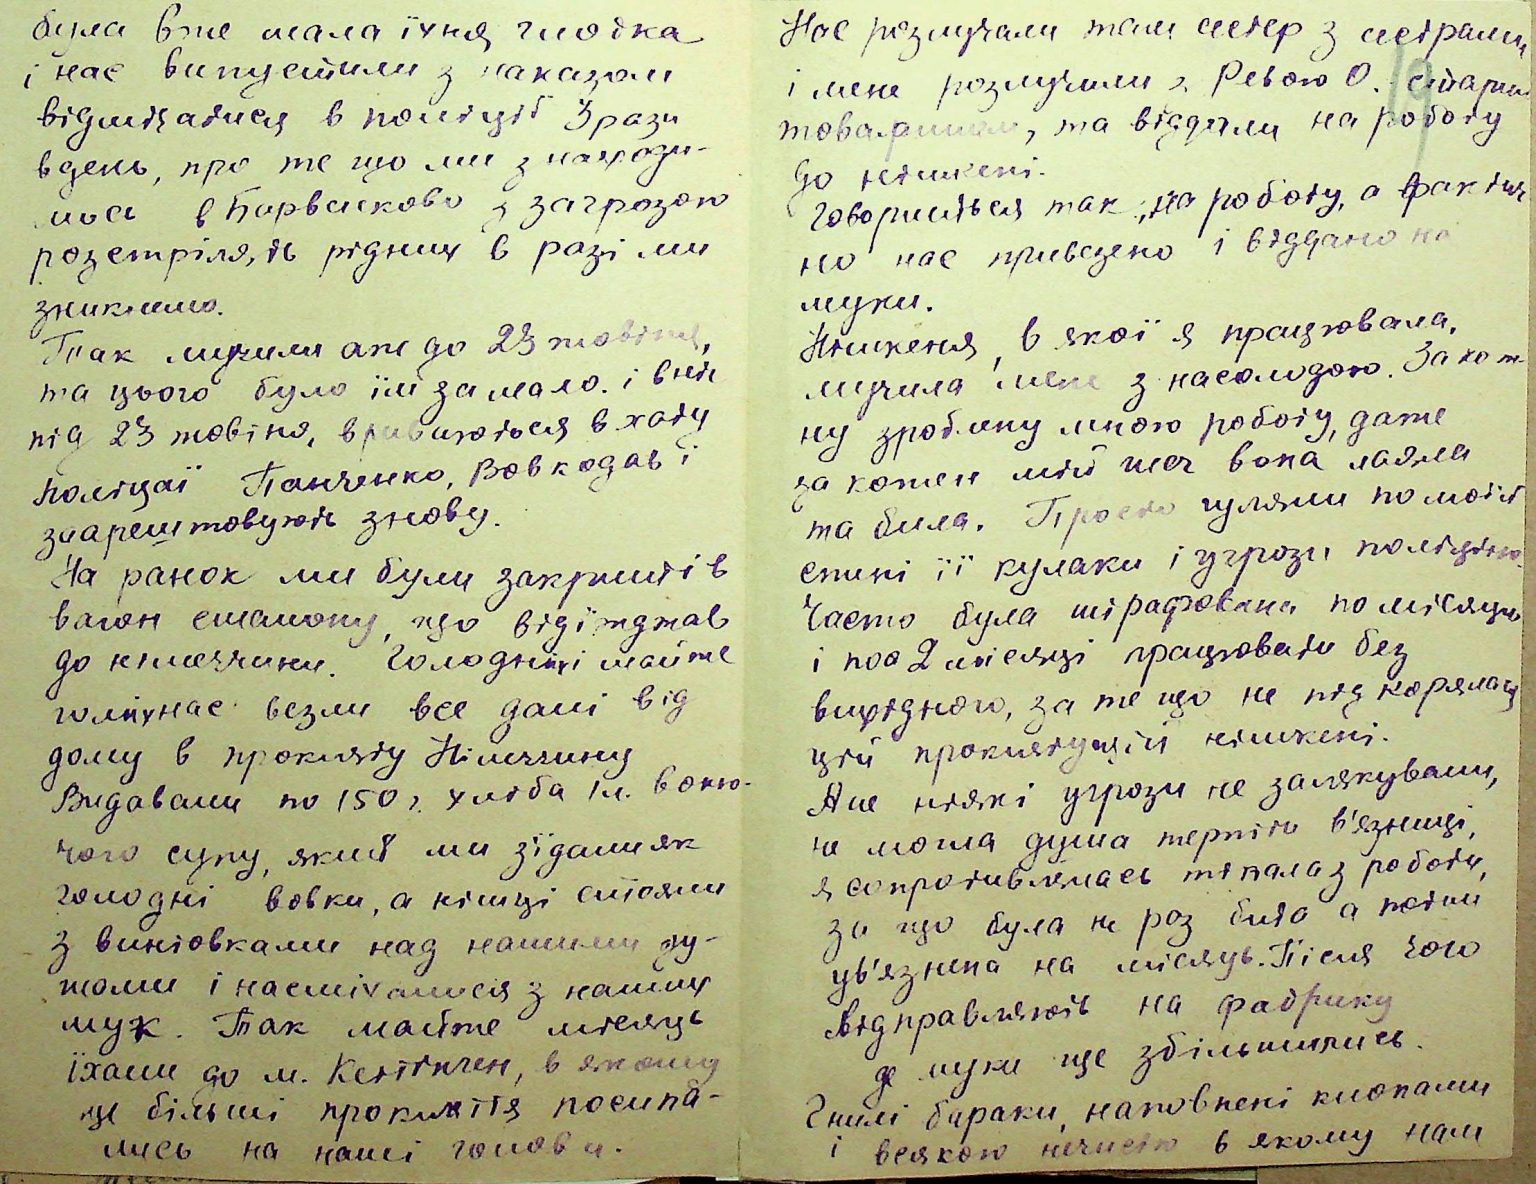 була вже мала їхня глотка
і нас випустили з наказом
відмічатися в поліції 3 рази
вдень, про те що ми знаходи-
мось в Барвенково з загрозою
розстрілять рідних в разі ми
зникнемо.
Так мучили аж до 23 жовтня,
та цього було їм замало. і в ніч
під 23 жовтня, вриваються в хату
поліцаї Панченко, Вовкодав і
заарештовують знову.
На ранок ми були закриті в
вагон ешалону, що відїжджав
до німеччини. Голодниї майже
голих нас везли все далі від
дому в прокляту Німеччину
Видавали по 150 г. хліба 1 л. воню-
чого супу, який ми зїдали як
голодні вовки, а німці стояли
з винтовками над нашими ду-
шами і насміхалися з наших
мук. Так майже місяць
їхали до м. Кеттінген, в якому
ще більші прокляття посипа-
лись на наші голови.
Нас розлучали там сестер з сестрами
і мене розлучили з Ревою О.
товаришем, та віддали на роботу
до німкені.
Говориться так, на роботу, а фактич
но нас приведено і віддано на
муки.
Німкеня, в якої я працювала,
мучила мене з насолодою. За кож-
ну зроблену мною роботу, даже
за кожен мій шаг вона лаяла
та била. Просто гуляли по моїй
спині її кулаки і угрози поліцією.
Часто була штрафована по місяцю
і по 2 місяці працювати без
вихідного, за те що не підкорялась
цій проклятущій німкені.
Але ніякі угрози не залякували,
не могла душа терпіти в'язниці,
я сопротивлялась тікала з роботи,
за що була не раз бита а потім
ув'язнена на місяць. Після чого
відправляють на фабрику
де муки ще збільшились.
Гнилі бараки, наповнені клопами
і всякою нечистю в якому нам